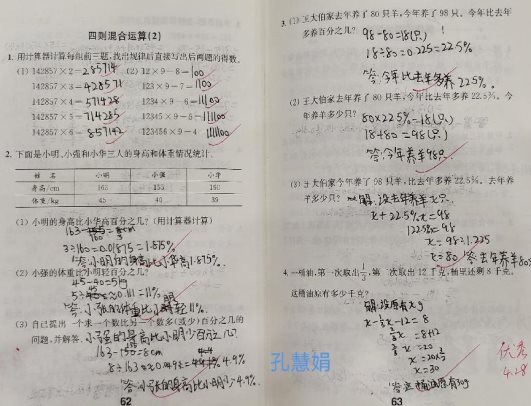 四则混合运算(2)
1. 用计算器计算每组前三题,找出规律后直接写出后两题的得数。
(1) 142857×2=285714 (2) 12×9-8=100
142857×3=428571 123×9-7=1100
142857×4=571428 1234×9-6=11100
142857×5=714285 12345×9-5=111100
142857×6=857142 123456×9-4=1111100
2. 下面是小明、小强和小华三人的身高和体重情况统计.
姓 名 小明 小强 小华
身高/cm 163 155 160
体重/kg 45 40 39
(1) 小明的身高比小华高百分之几?(用计算器计算)
3÷160=0.01875=1.875%
答:小明的身高比小华高1.875%.
(2) 小强的体重比小明轻百分之几?
45-40=5kg
5÷45≈0.11=11%
答:小强的体重比小明轻11%.
(3) 自己提出一个求一个数比另一个数多(或少)百分之几的
问题,并解答.小强的身高比小明少百分之几?
163-155=8cm
8÷163≈0.049=4.9%
答:小强的身高比小明少4.9%.
62
3. (1) 王大伯家去年养了80只羊,今年养了98只。今年比去年
多养百分之几?
98-80=18(只)
18÷80=0.225=22.5%
答:今年比去年多养22.5%.
(2) 王大伯家去年养了80只羊,今年比去年多养22.5%。今
年养羊多少只?
80×22.5%=18(只)
18+80=98(只)
答:今年养羊98只.
(3) 王大伯家今年养了98只羊,比去年多养22.5%。去年养
羊多少只?
解:设去年养羊x只.
x+22.5%x=98
122.5%x=98
x=98÷1.225
x=80
答:去年养羊80只
4. 一桶油,第一次取出,第二次取出12千克,桶里还剩8千克。
这桶油原有多少千克?
解:设原有x kg
=8+12
x=30
答:这桶油原有30kg
孔慧娟
优秀
4.28
63